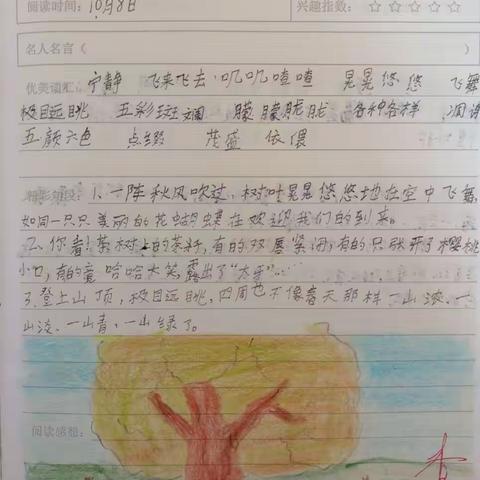 阅读时间: 10月8日 兴趣指数: ☆ ☆ ☆ ☆ ☆
名人名言 ( )
优美词汇: 宁静 飞来飞去 叽叽喳喳 晃晃悠悠 飞舞
极目远眺 五彩斑斓 朦朦胧胧 各种各样 凋谢
五颜六色 点缀 茂盛 依偎
精彩片段: 1、一阵秋风吹过,树叶晃晃悠悠地在空中飞舞,
如同一只只美丽的花蝴蝶在欢迎我们的到来。
二、你看!茶树上的茶籽,有的双唇紧闭,有的只张开了樱桃
小口,有的竟哈哈大笑,露出了“大牙”……
3.登上山顶,极目远眺,四周也不像春天那样一山浓、一
山淡、一山青,一山绿了。
阅读感想: